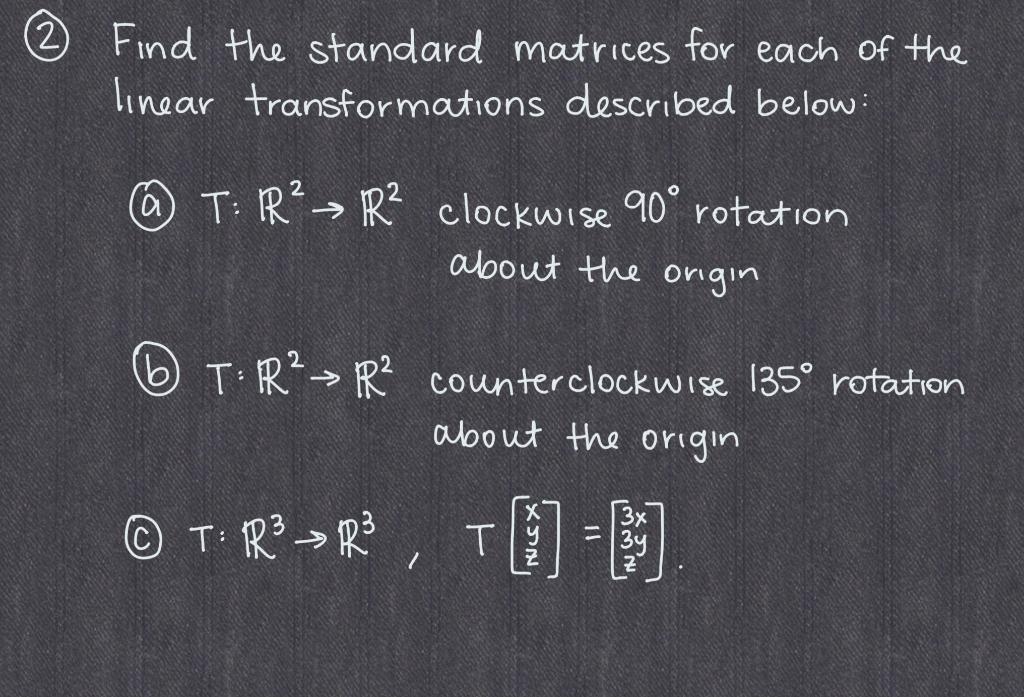 ② Find the standard matrices for each of the
linear transformations described below:
ⓐ T: ℝ² → ℝ² clockwise 90° rotation
about the origin
ⓑ T: ℝ² → ℝ² counterclockwise 135° rotation
about the origin
ⓒ T: ℝ³ → ℝ³ , T [x y z] = [3x 3y z].